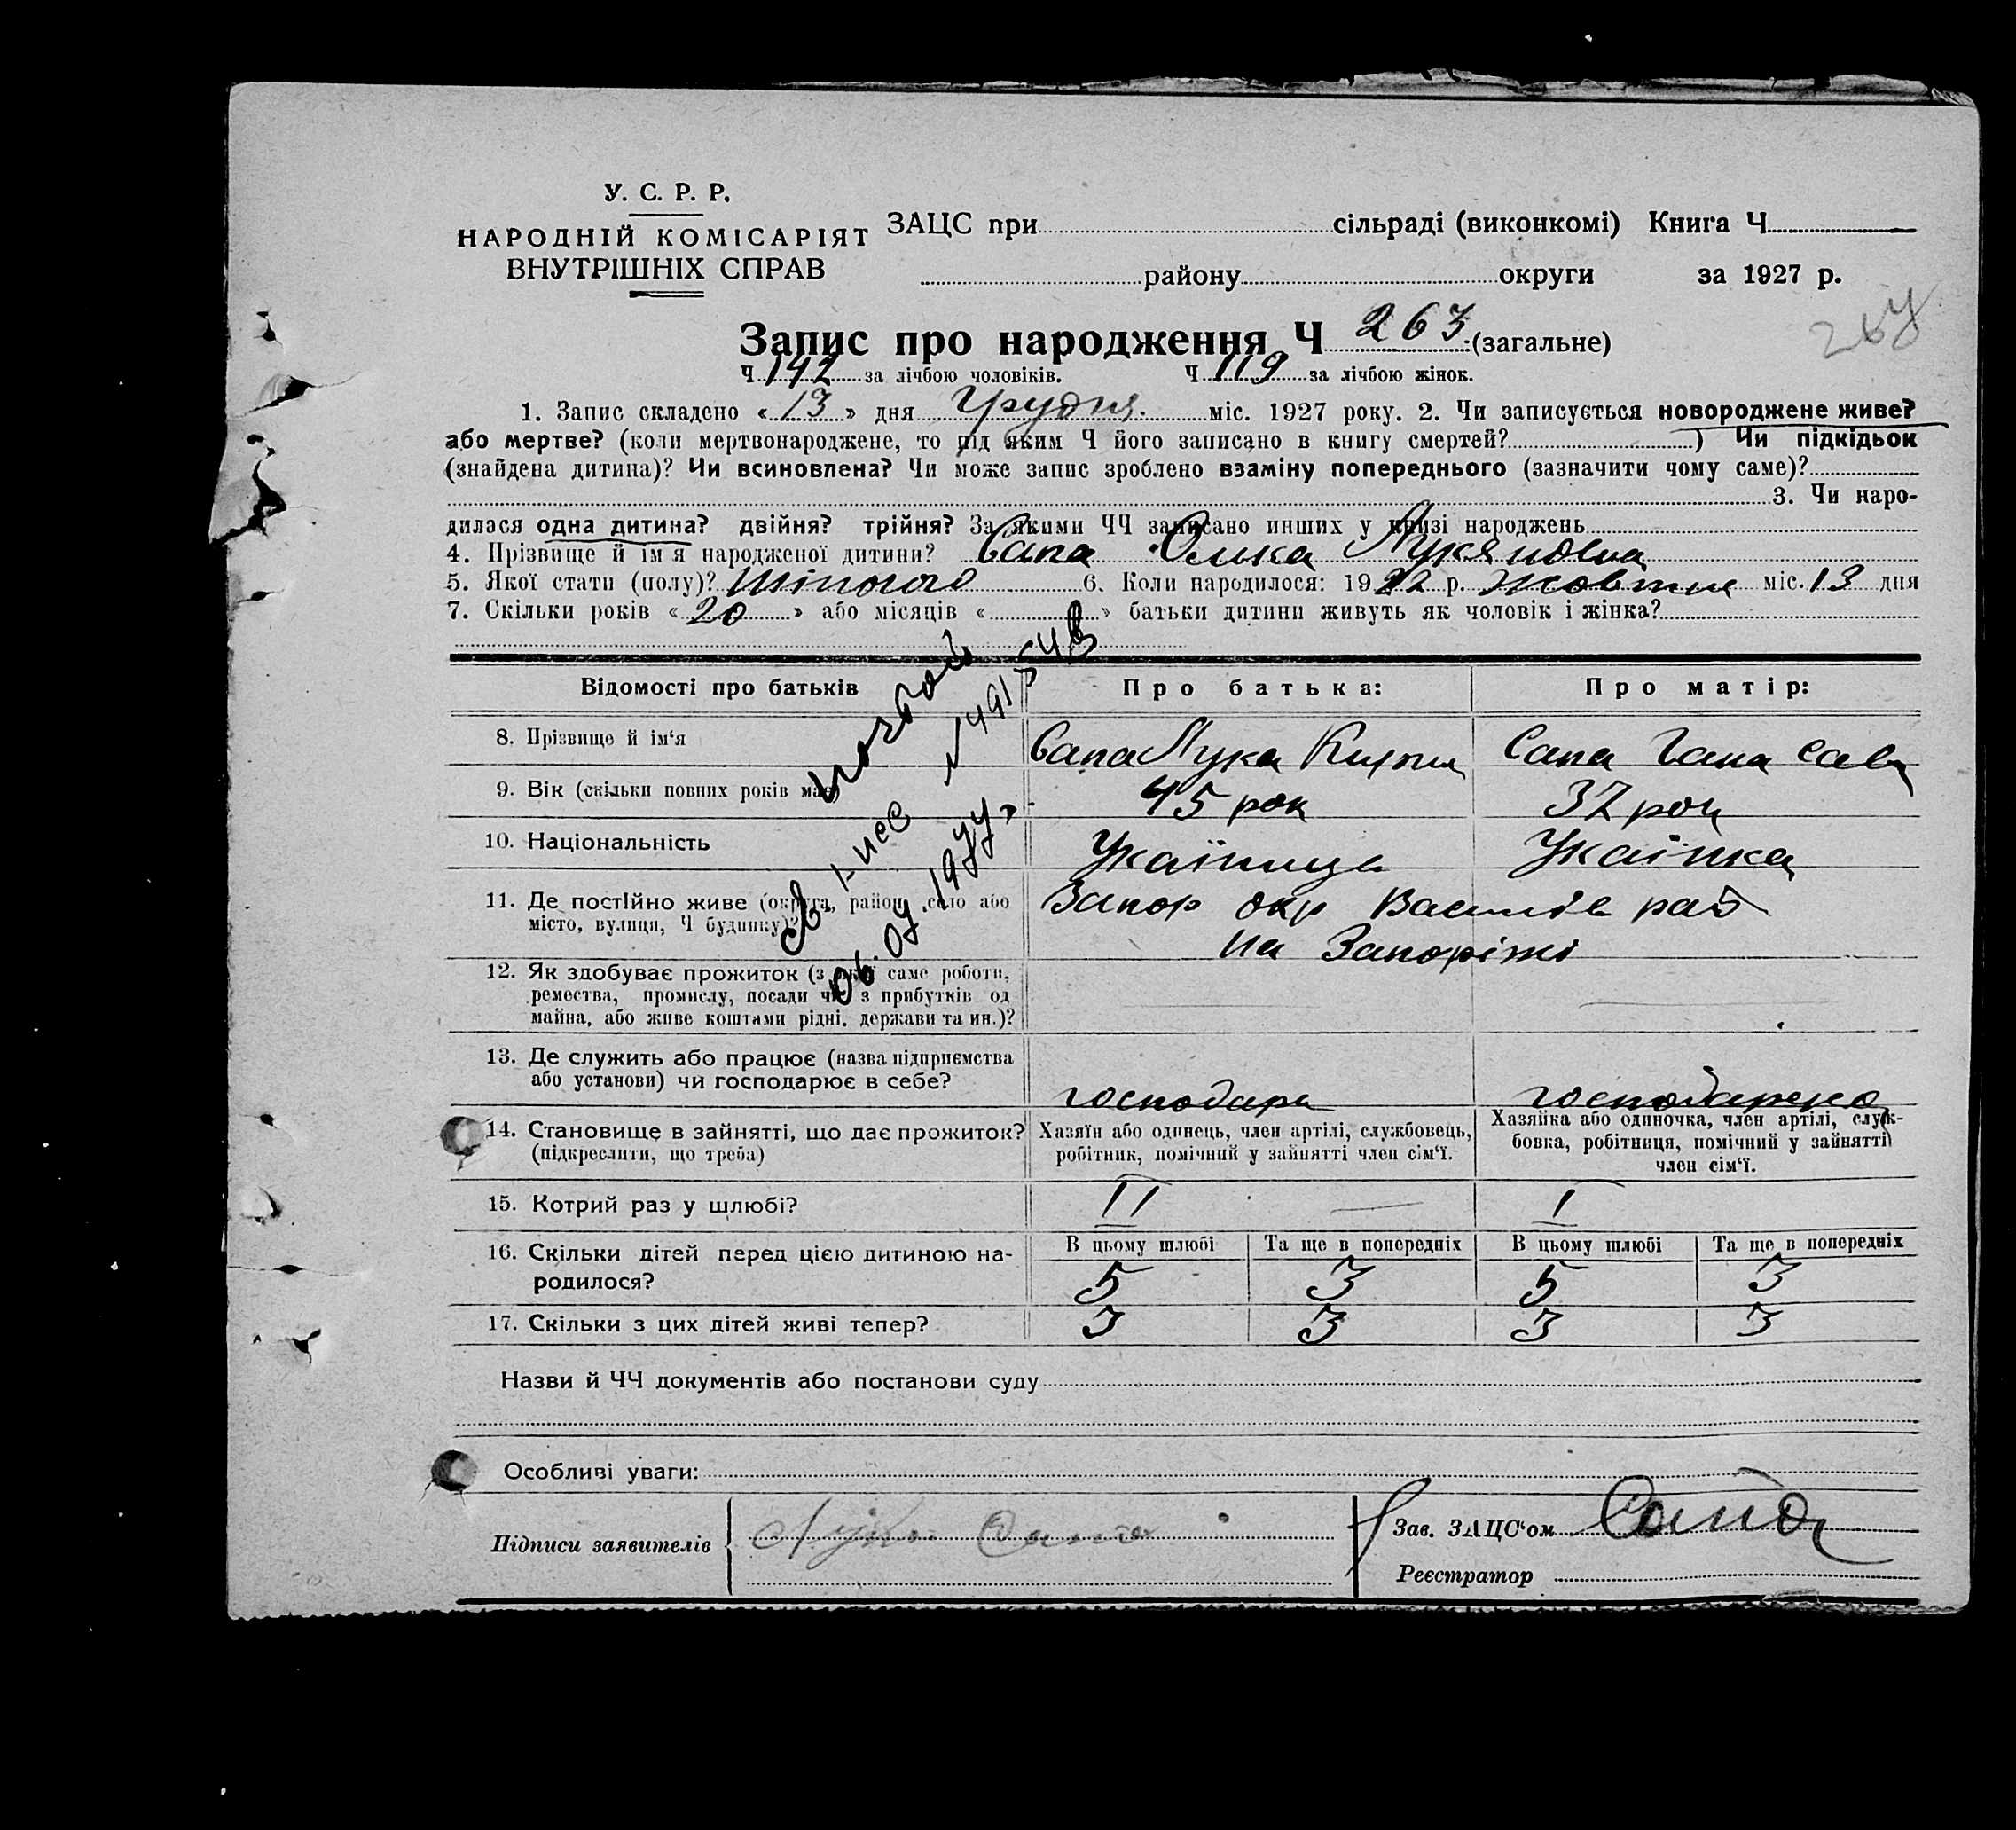 У. С. Р. Р.
НАРОДНІЙ КОМІСАРІЯТ
ВНУТРІШНІХ СПРАВ
ЗАЦС при сільраді (виконкомі) Книга Ч
району округи за 1927 р.
Запис про народження Ч 263 (загальне)
Ч 142 за лічбою чоловіків. Ч 119 за лічбою жінок.
1. Запис складено « 13 » дня Грудня міс. 1927 року. 2. Чи записується новороджене живе?
або мертве? (коли мертвонароджене, то під яким Ч його записано в книгу смертей? ) Чи підкідьок
(знайдена дитина)? Чи всиновлена? Чи може запис зроблено взаміну попереднього (зазначити чому саме)?
3. Чи наро-
дилася одна дитина? двійня? трійня? За якими ЧЧ записано инших у книзі народжень
4. Прізвище й ім'я народженої дитини? Сапа Олика Лукяновна
5. Якої стати (полу)? жіночого 6. Коли народилося: 1922 р. жовтня міс. 13 дня
7. Скільки років « 20 » або місяців « » батьки дитини живуть як чоловік і жінка?
Відомості про батьків Про батька: Про матір:
8. Прізвище й ім'я Сапа Лука Сапа Гана Сав
9. Вік (скільки повних років має) 45 рок 37 рок
10. Національність Украінець Украінка
11. Де постійно живе (округа, район, село або Запор окр Василів рай
місто, вулиця, Ч будинку)? на Запоріжі
12. Як здобуває прожиток (з якої саме роботи,
ремества, промислу, посади чи з прибутків од
майна, або живе коштами рідні, держави та ин.)?
13. Де служить або працює (назва підприємства
або установи) чи господарює в себе? господарь господарка
14. Становище в зайнятті, що дає прожиток? Хазяїн або одинець, член артілі, службовець, Хазяйка або одиночка, член артілі, служ-
(підкреслити, що треба) робітник, помічний у зайнятті член сім'ї. бовка, робітниця, помічний у зайнятті
член сім'ї.
15. Котрий раз у шлюбі? II I
16. Скільки дітей перед цією дитиною на- В цьому шлюбі Та ще в попередніх В цьому шлюбі Та ще в попередніх
родилося? 5 3 5 3
17. Скільки з цих дітей живі тепер? 3 3 3 3
Назви й ЧЧ документів або постанови суду
Особливі уваги:
Підписи заявителів Лука Сапа
Зав. ЗАЦС'ом
Реєстратор